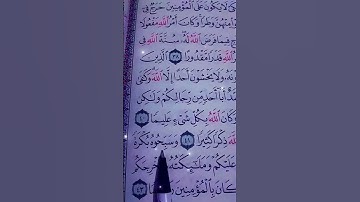 لَا يَكُونَ عَلَى الْمُؤْمِنِينَ حَرَجٌ فِي
مِنْهُنَّ وَطَرًا وَكَانَ أَمْرُ اللَّهِ مَفْعُولًا
فِيمَا فَرَضَ اللَّهُ لَهُ سُنَّةَ اللَّهِ فِي
اللَّهِ قَدَرًا مَقْدُورًا ٣٨ الَّذِينَ
وَلَا يَخْشَوْنَ أَحَدًا إِلَّا اللَّهَ وَكَفَى
أَبَا أَحَدٍ مِنْ رِجَالِكُمْ وَلَٰكِنْ
وَكَانَ اللَّهُ بِكُلِّ شَيْءٍ عَلِيمًا ٤٠
ذِكْرًا كَثِيرًا ٤١ وَسَبِّحُوهُ بُكْرَةً
عَلَيْكُمْ وَمَلَٰئِكَتُهُ لِيُخْرِجَكُمْ
كَانَ بِالْمُؤْمِنِينَ ٤٣